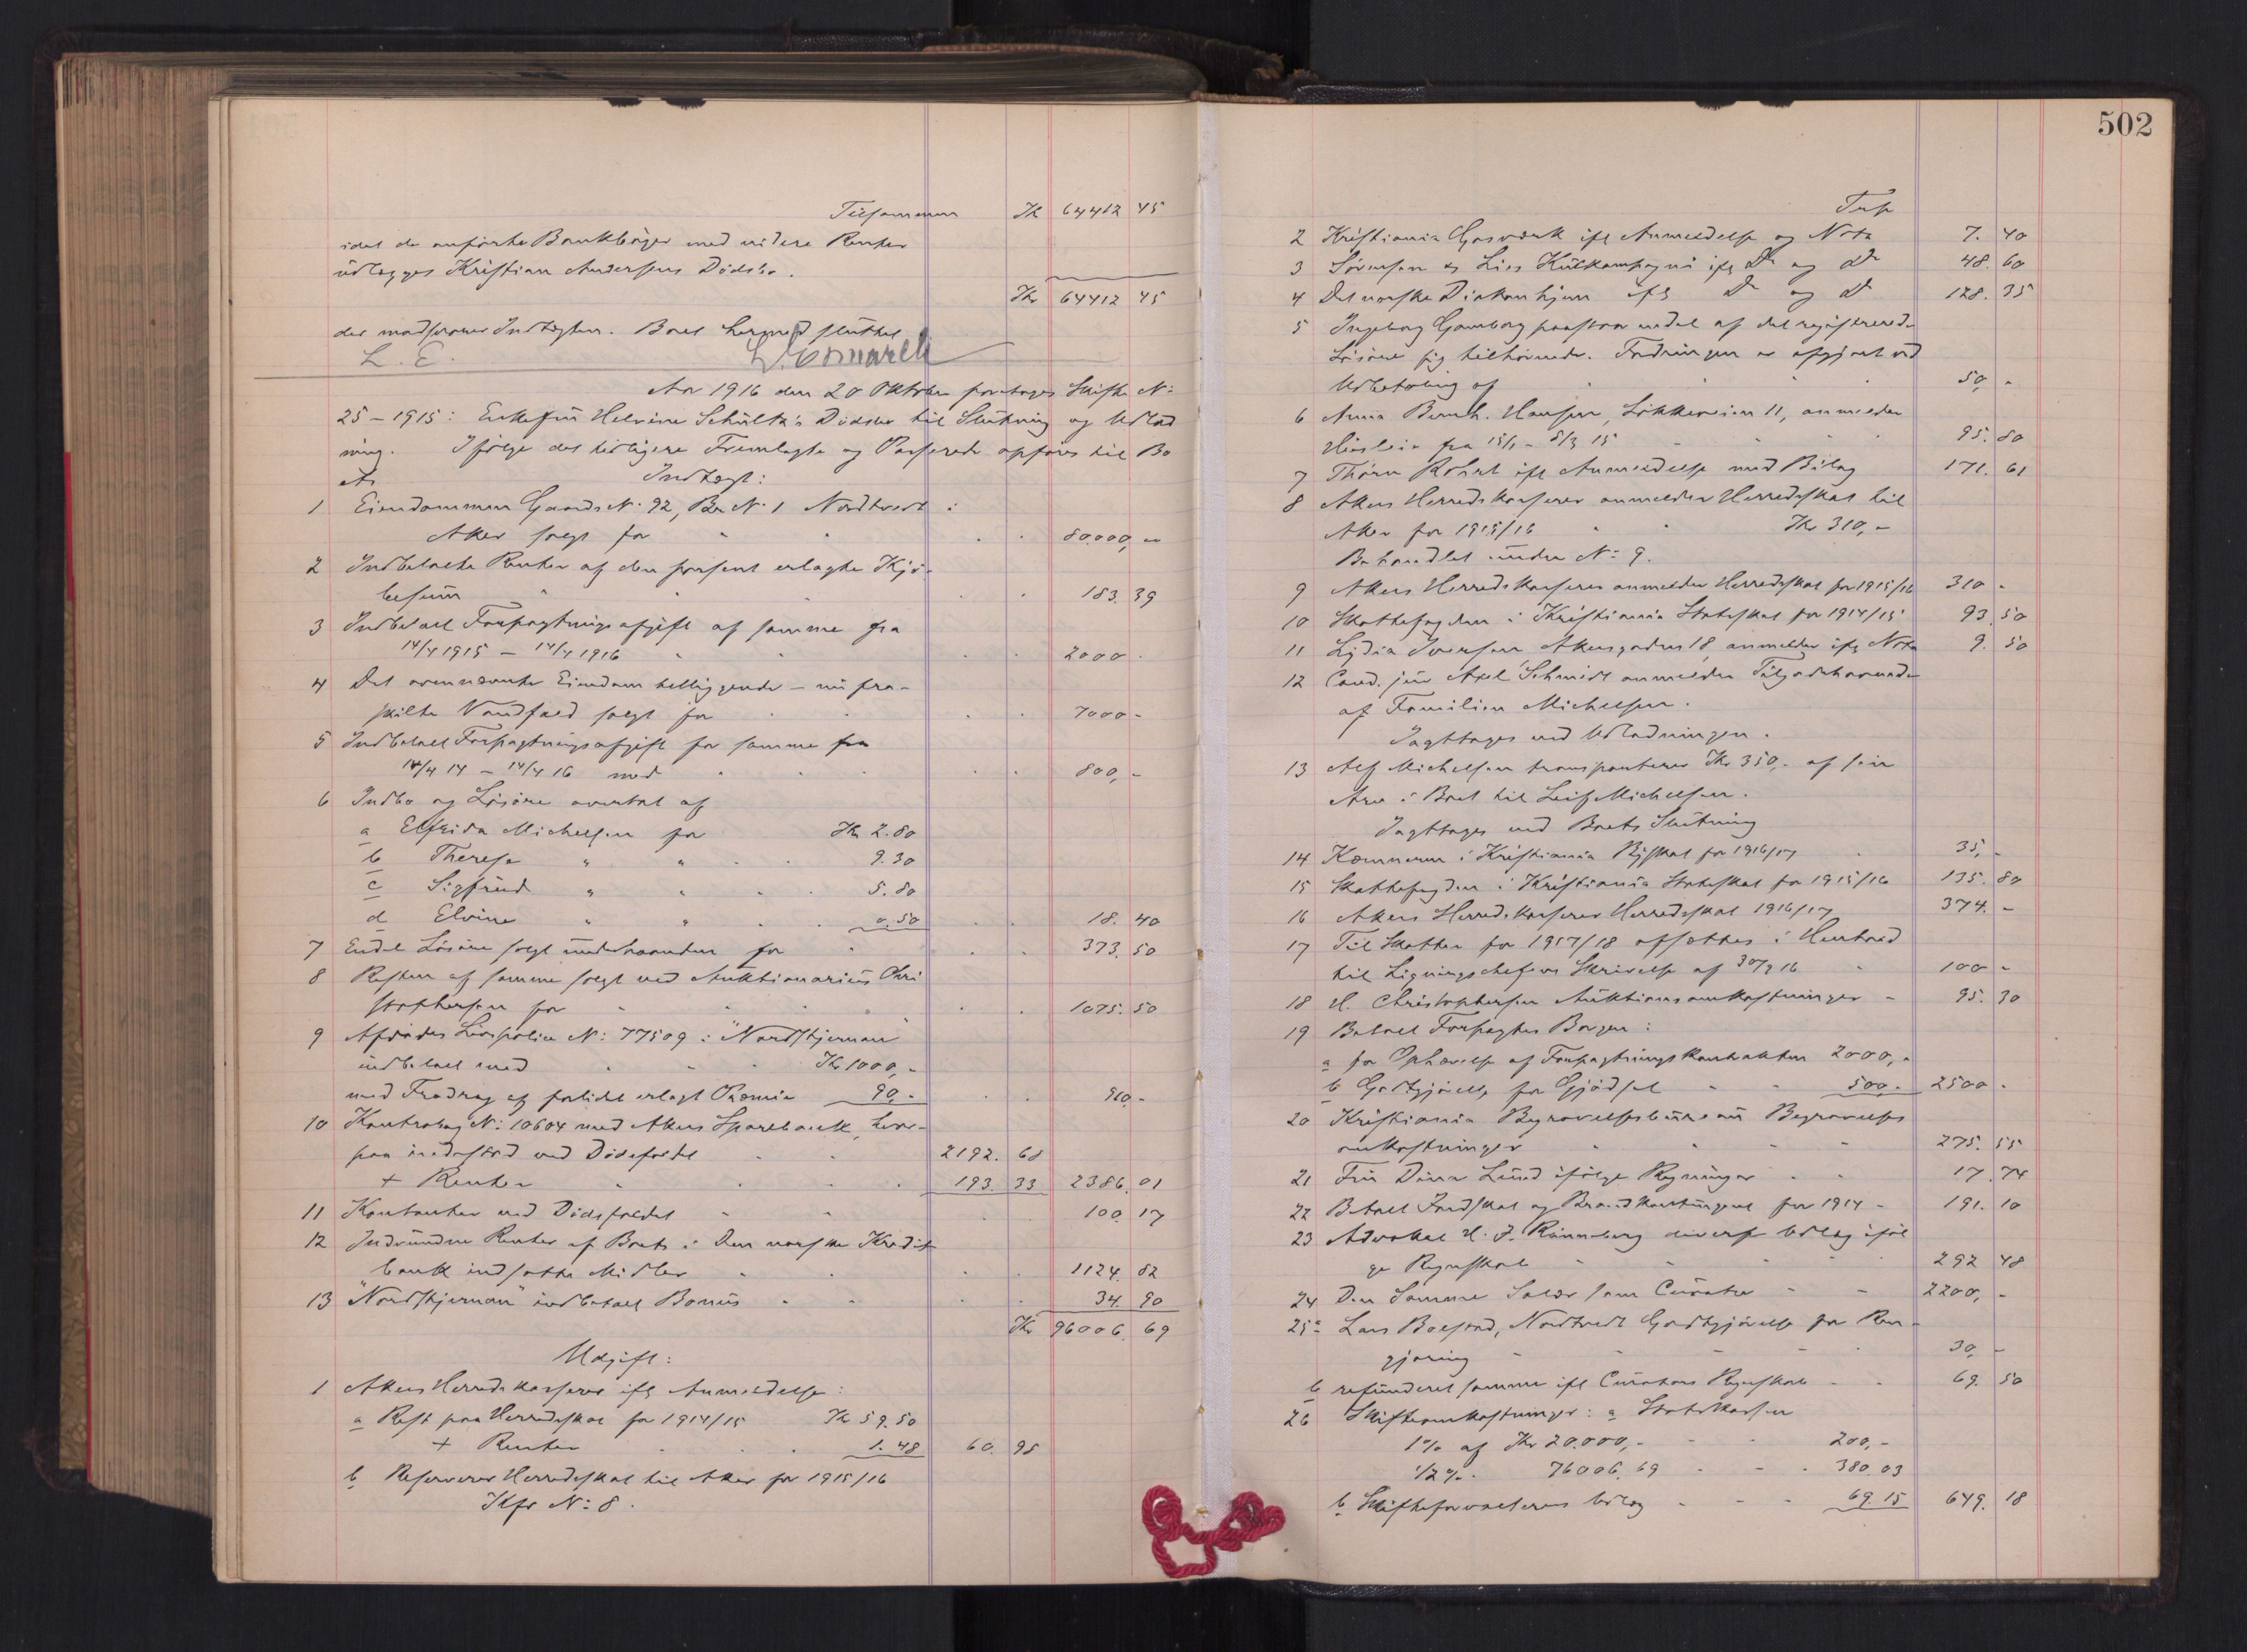 Tilsammen Kr 64412 45
idet de anførte Bankbøger med videre Renter
udlægges Kristian Andersens Dødsbo.
Kr 64412 45
der modsvarer Indtægten. Boet hermed sluttet
L. E.
Aar 1916 den 20 Oktober foretoges Skifte No
25 - 1915: Enkefru Helvine Schultz's Dødsbo til Slutning og Udlod
ning. Ifølge det tidligere Fremlagte og Passerede opføres til Bo
ets Indtægt:
1 Eiendommen Gaards No. 92, Br. No. 1 Nordtvedt i
Aker solgt for 80.000,-
2 Indbetalte Renter af den forsent erlagte Kjø-
besum 183. 39
3 Indbetalt Forpagtningsafgift af samme fra
14/4 1915 - 14/4 1916 2000 -
4 Det ovennævnte Eiendom tilliggende - nu fra-
skilte Vandfald solgt for 7000 -
5 Indbetalt Forpagtningsafgift for samme fra
14/4 14 - 14/4 16 med 800, -
6 Indbo og Løsøre overtat af
a Elfrida Michelsen for Kr 2.80
b Therese " " 9.30
c Sigfrid " " 5.80
d Elvine " " 0.50 18. 40
7 Endel Løsøre solgt underhaanden for 373. 50
8 Resten af samme solgt ved Auktionarius Chri
stophersen for 1075. 50
9 Afdødes Livspolice No: 77509 i "Nordstjernen"
indbetalt med Kr 1000,-
med Fradrag af forlidt erlagt Præmie 90,- 910,-
10 Kontrabog No: 10604 med Akers Sparebank, hvor-
paa indestod ved Dødsfaldet 2192. 68
+ Renter 193. 33 2386. 01
11 Kontanter ved Dødsfaldet 100. 17
12 Indvundne Renter af Boets i Den norske Kredit
bank indsatte Midler 1124. 82
13 "Nordstjernen" indbetalt Bonus 34. 90
Kr 96006. 69
Udgift:
1 Akers Herredskasserer ifl Anmeldelse:
a Rest paa Herredsskat for 1914/15 Kr 59.50
+ Renter 1.48 60. 98
b Reserverer Herredsskat til Aker for 1915/16
Kfr No: 8.
502
Trsp
2 Kristiania Gasværk ifl Anmeldelse og Nota 7. 40
3 Sørensen & Lies Kulkompagni ifl Do og Do 48. 60
4 Det norske Diakonhjem ifl Do og Do 128. 35
5 Ingeborg Gamborg paastaar endel af det registrerede
Løsøre sig tilhørende. Fordringen er afgjort ved
Udbetaling af 50, -
6 Anna Bernh. Hansen, Løkkeveien 11, anmelder
Husleie fra 15/1 - 8/3 15 95. 80
7 Thorn Rohrt ifl Anmeldelse med Bilag 171. 61
8 Akers Herredskasserer anmelder Herredsskat til
Aker for 1915/16 Kr 310,-
Behandlet under No: 9.
9 Akers Herredskasserer anmelder Herredsskat for 1915/16 310 -
10 Skattefogden i Kristiania Statsskat for 1914/15 93. 50
11 Lydia Iversen Akersgaden 18 anmelder ifl Nota 9. 50
12 Cand. jur Axel Schmidt anmelder Tilgodehavende
af Familien Michelsen.
Iagttages ved Udlodningen.
13 Alf Michelsen transporterer Kr 350,- af sin
Arv i Boet til Leif Michelsen.
Iagttages ved Boets Slutning
14 Kæmneren i Kristiania Byskat for 1916/17 35,-
15 Skattefogden i Kristiania Statsskat for 1915/16 135. 80
16 Akers Herredskasserer Herredsskat 1916/17 374. -
17 Til Skatten for 1917/18 afsættes i Henhold
til Ligningschefens Skrivelse af 30/9 16 100 -
18 H. Christophersen Auktionsomkostninger 95. 30
19 Betalt Forpagter Borgen:
a for Ophævelse af Forpagtningskontrakten 2000,-
b Godtgjørelse for Gjødsel 500,- 2500 -
20 Kristiania Begravelsesbureau Begravelses
omkostninger 275. 55
21 Fru Dina Lund ifølge Regninger 17. 74
22 Betalt Jordskat og Brandkontingent for 1914 191. 10
23 Advokat H. J. Rønneberg diverse Udlæg iføl
ge Regnskab 292 48
24 Den Samme Salær som Curator 2200, -
25a Lars Bolstad, Nordtvedt Godtgjørelse for Ren-
gjøring 30, -
b refunderet samme ifl Curators Regnskab 69. 50
26 Skifteomkostninger: a Statskassen
1% af Kr 20.000,- 200,-
1/2 % - 76006.69 380.03
b Skifteforvalterens Udlæg 69.15 649. 18